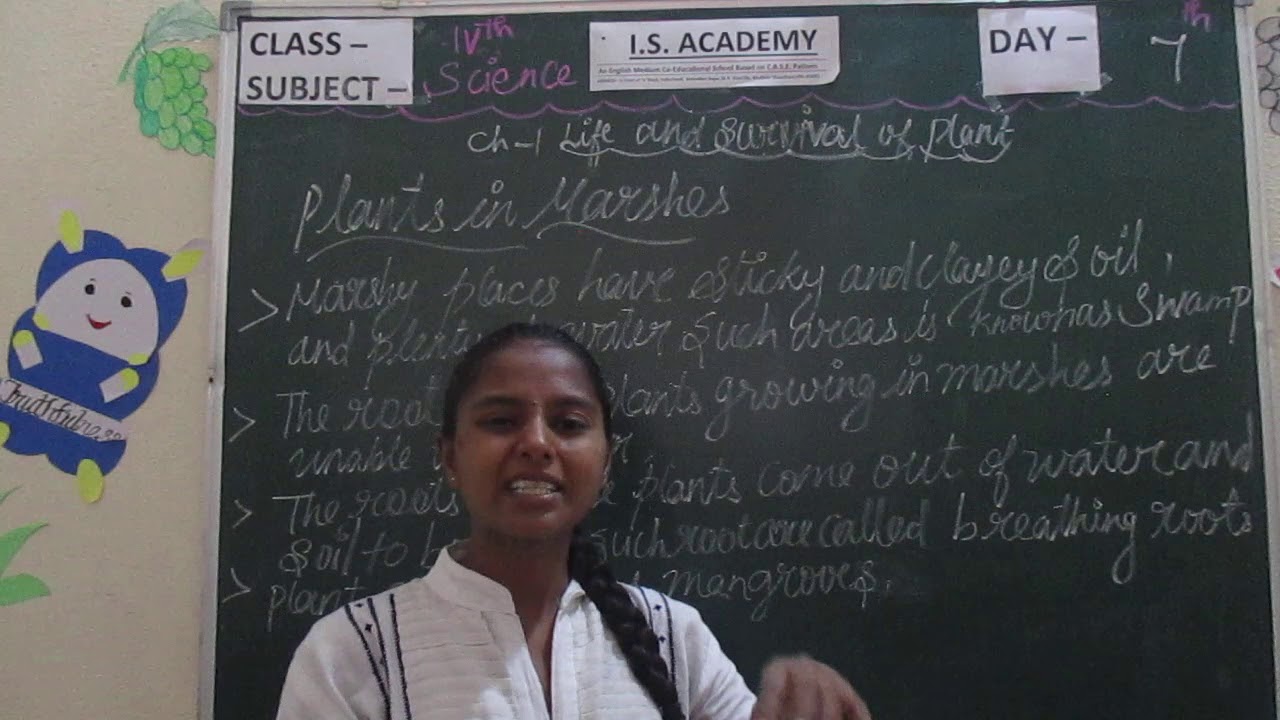 CLASS – IVth
SUBJECT – Science
I.S. ACADEMY
An English Medium Co-Educational School Based on C.B.S.E. Pattern
DAY – 7th
Ch-1 Life and Survival of Plant
Plants in Marshes
> Marshy places have sticky and clayey soil,
and water such areas is known as Swamp
> The plants growing in marshes are
unable
> The roots plants come out of water and
soil to such root are called breathing roots
> plant mangroves.
Truthfulness